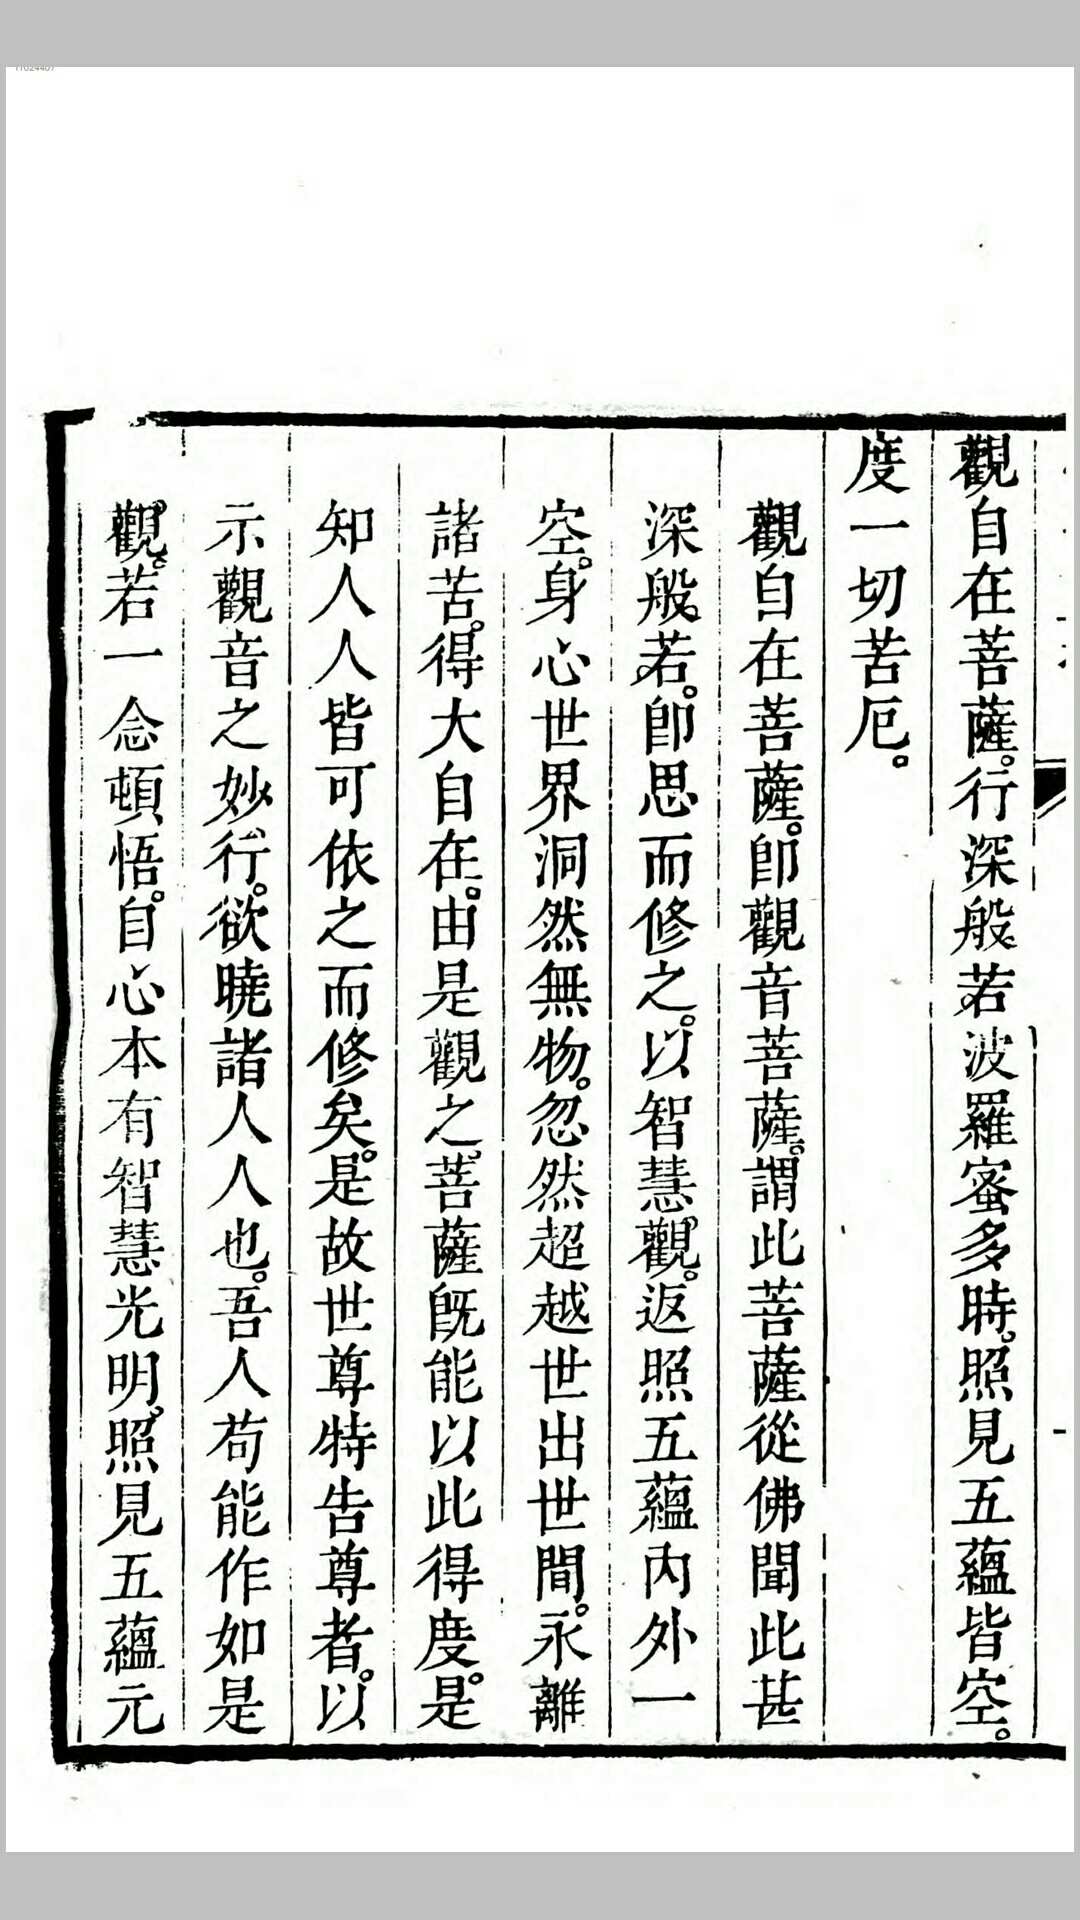 觀自在菩薩。行深般若波羅蜜多時。照見五蘊皆空。
度一切苦厄。
觀自在菩薩。卽觀音菩薩。謂此菩薩從佛聞此甚
深般若。卽思而修之。以智慧觀。返照五蘊內外一
空。身心世界洞然無物。忽然超越世出世間。永離
諸苦。得大自在。由是觀之。菩薩旣能以此得度。是
知人人皆可依之而修矣。是故世尊特告尊者。以
示觀音之妙行。欲曉諸人人也。吾人苟能作如是
觀。若一念頓悟。自心本有智慧光明。照見五蘊元